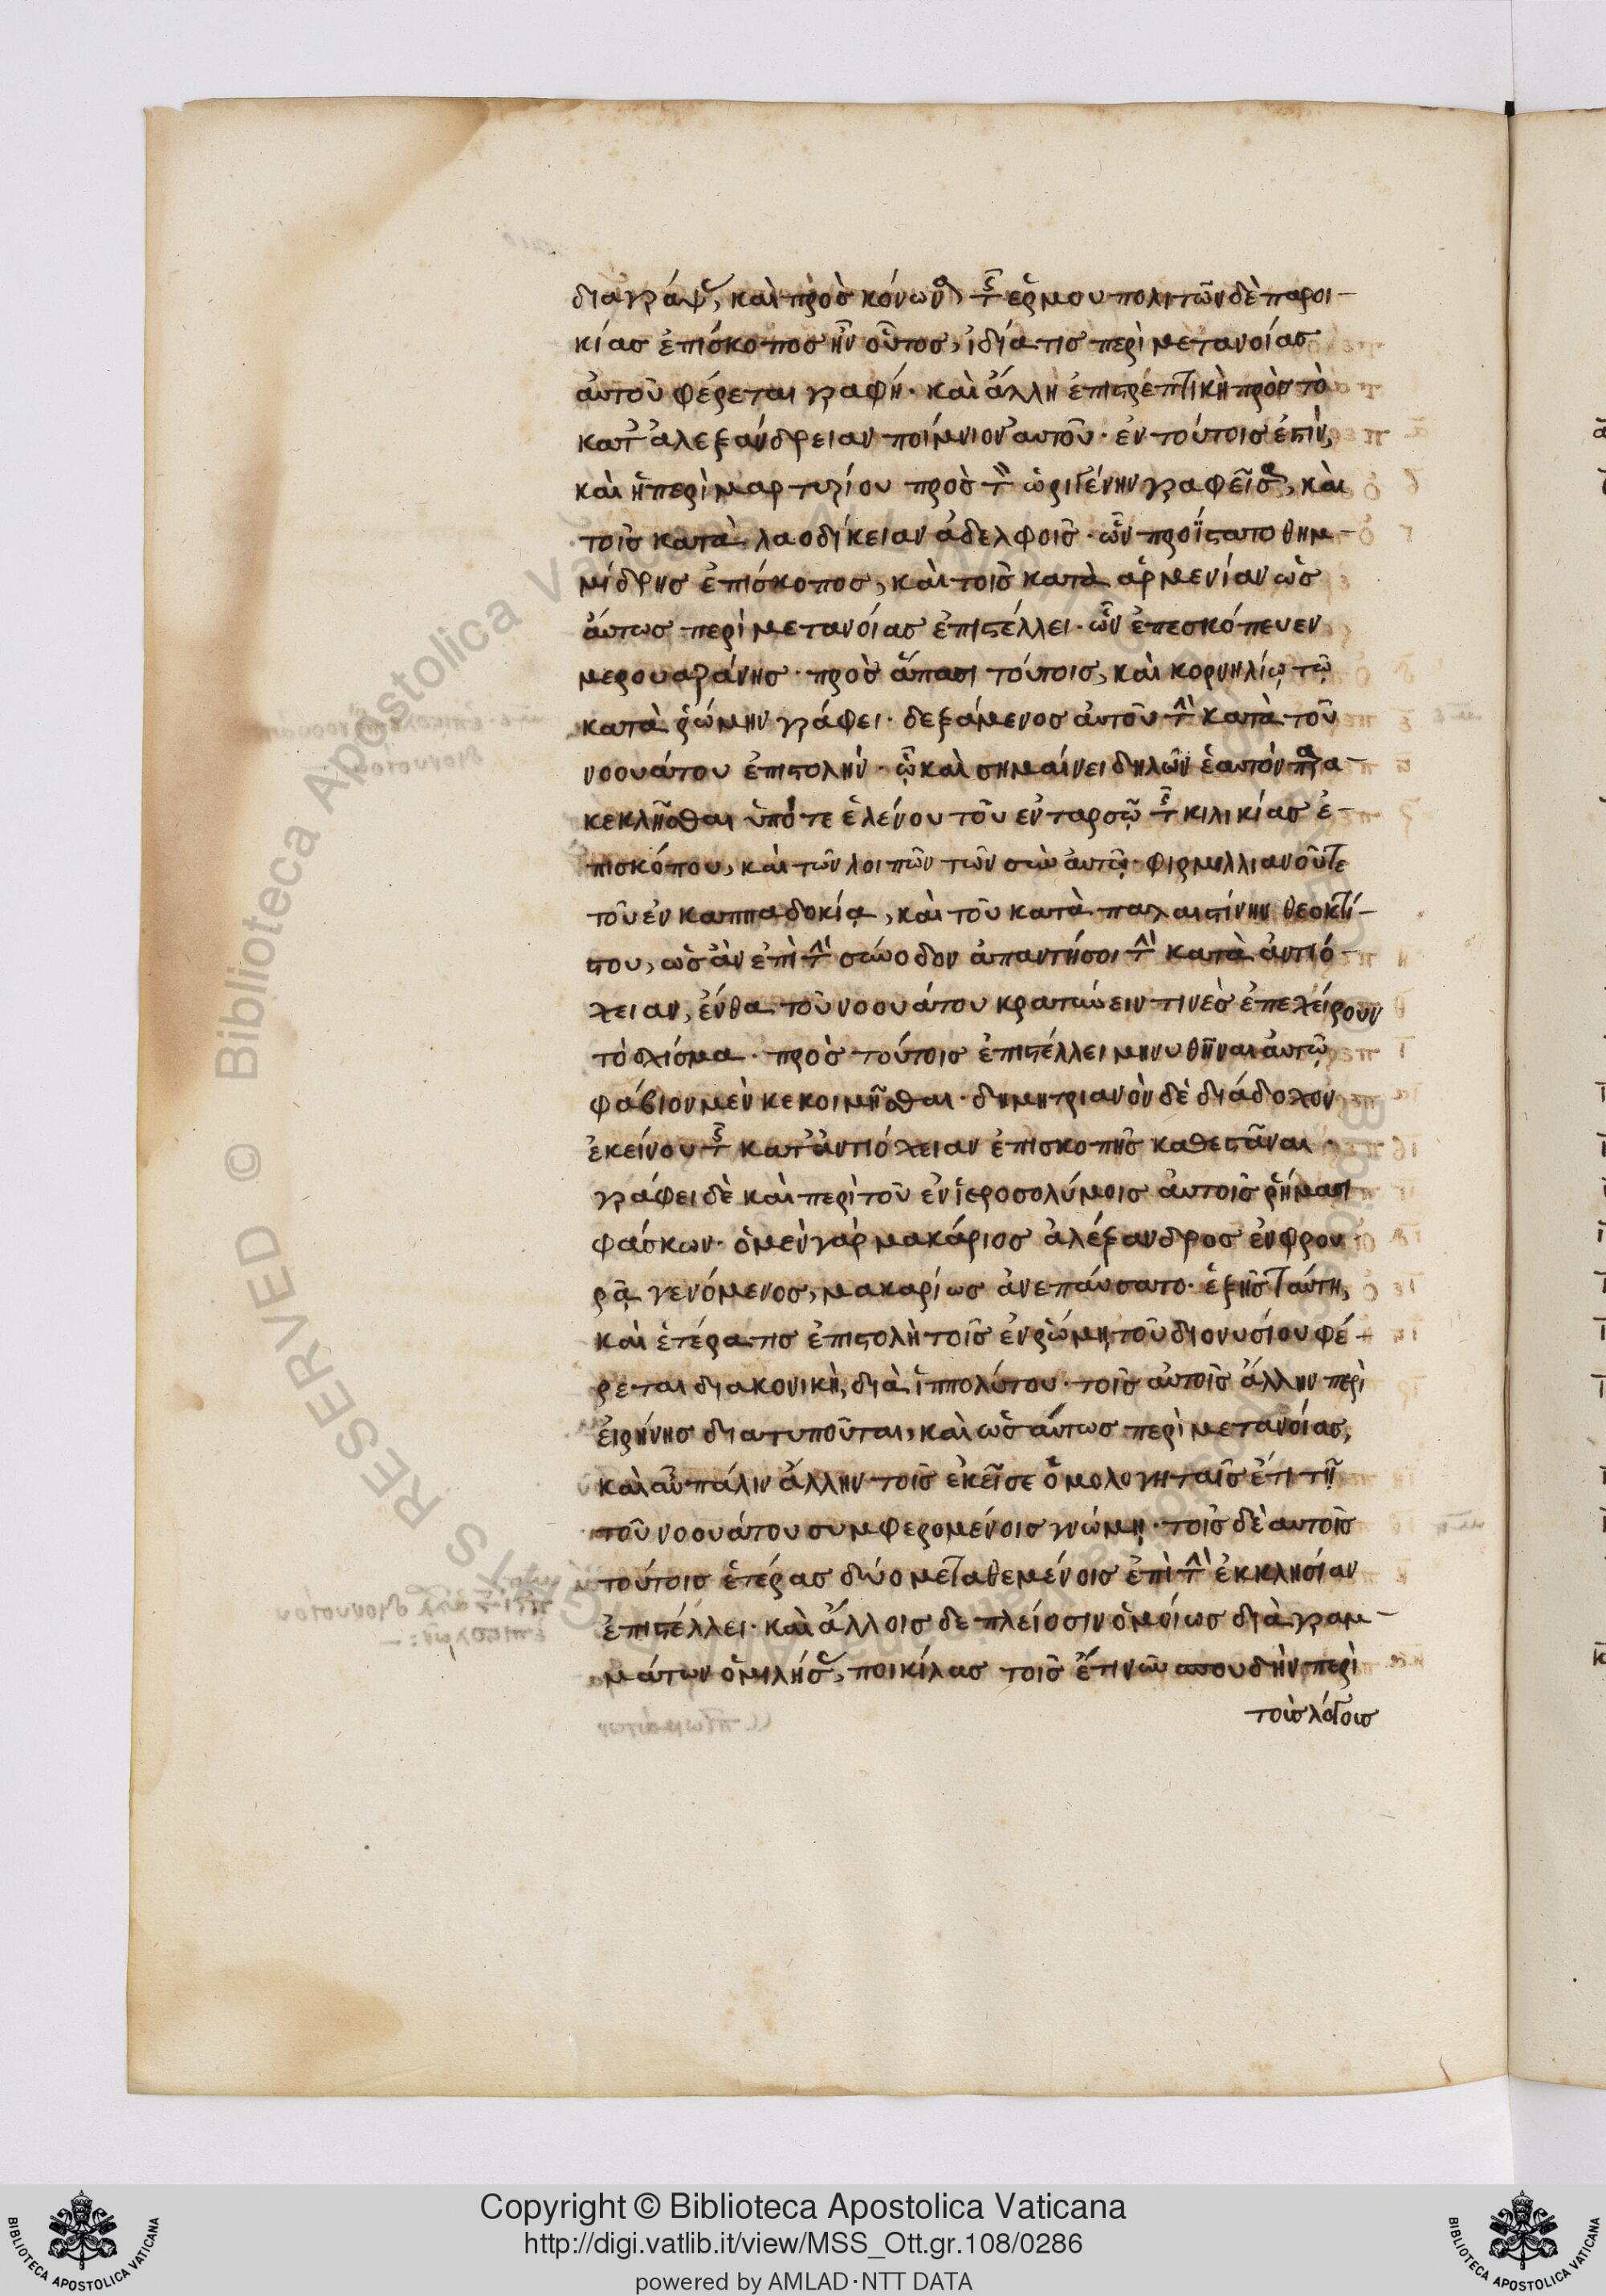 διαγράψας, καὶ πρὸς κόνωνα τῆς ἑρμουπολιτῶν δὲ παροι-
κίας ἐπίσκοπος ἦν οὗτος, ἰδία τις περὶ μετανοίας
αὐτοῦ φέρεται γραφή· καὶ ἄλλη ἐπιστρεπτικὴ πρὸς τὸ
κατ' ἀλεξάνδρειαν ποίμνιον αὐτοῦ· ἐν τούτοις ἐστὶν,
καὶ ἡ περὶ μαρτυρίου πρὸς τὸν ὠριγένην γραφεῖσα, καὶ
τοῖς κατὰ λαοδίκειαν ἀδελφοῖς· ὧν προΐστατο θημ-
μίδρης ἐπίσκοπος, καὶ τοῖς κατὰ ἀρμενίαν ὡς
αύτως περὶ μετανοίας ἐπιστέλλει· ὧν ἐπεσκόπευεν
μερουζάνης· πρὸς ἅπασι τούτοις, καὶ κορνηλίῳ τῷ
κατὰ ῥώμην γράφει· δεξάμενος αὐτοῦ τὴν κατὰ τοῦ
νοουάτου ἐπιστολήν· ᾧ καὶ σημαίνει δηλῶν ἑαυτὸν παρα-
κεκλῆσθαι ὑπό τε ἑλένου τοῦ ἐν ταρσῷ τῆς κιλικίας ἐ-
πισκόπου, καὶ τῶν λοιπῶν τῶν σὺν αὐτῷ· φιρμιλλιανοῦ τε
τοῦ ἐν καππαδοκίᾳ, καὶ τοῦ κατὰ παλαιστίνην θεοκτί-
στου, ὡς ἂν ἐπὶ τὴν σύνοδον ἀπαντήσοι τὴν κατὰ ἀντιό
χειαν, ἔνθα τοῦ νοουάτου κρατύνειν τινὲς ἐπεχείρουν
τὸ σχίσμα· πρὸς τούτοις ἐπιστέλλει μηνυθῆναι αὐτῷ
φάβιον μὲν κεκοιμῆσθαι· δημητριανὸν δὲ διάδοχον
ἐκείνου τῆς κατ' ἀντιόχειαν ἐπισκοπῆς καθεστᾶναι·
γράφει δὲ καὶ περὶ τοῦ ἐν ἱεροσολύμοις αὐτοῖς ῥήμασι
φάσκων· ὁ μὲν γὰρ μακάριος ἀλέξανδρος ἐν φρου
ρᾷ γενόμενος, μακαρίως ἀνεπαύσατο· ἑξῆς ταύτῃ,
καὶ ἑτέρα τις ἐπιστολὴ τοῖς ἐν ῥώμῃ τοῦ διονυσίου φέ-
ρεται διακονικὴ, διὰ ἱππολύτου· τοῖς αὐτοῖς ἄλλην περὶ
εἰρήνης διατυποῦται, καὶ ὡς αύτως περὶ μετανοίας,
καὶ αὖ πάλιν ἄλλην τοῖς ἐκεῖσε ὁμολογηταῖς ἔτι τῇ
τοῦ νοουάτου συμφερομένοις γνώμῃ· τοῖς δὲ αὐτοῖς
τούτοις ἑτέρας δύο μεταθεμένοις ἐπὶ τὴν ἐκκλησίαν
ἐπιστέλλει· καὶ ἄλλοις δὲ πλείοσιν ὁμοίως διὰ γραμ-
μάτων ὁμιλήσας, ποικίλας τοῖς ἔτι νῦν σπουδὴν περὶ
τοὺς λόγους
Copyright © Biblioteca Apostolica Vaticana
http://digi.vatlib.it/view/MSS_Ott.gr.108/0286
powered by AMLAD·NTT DATA